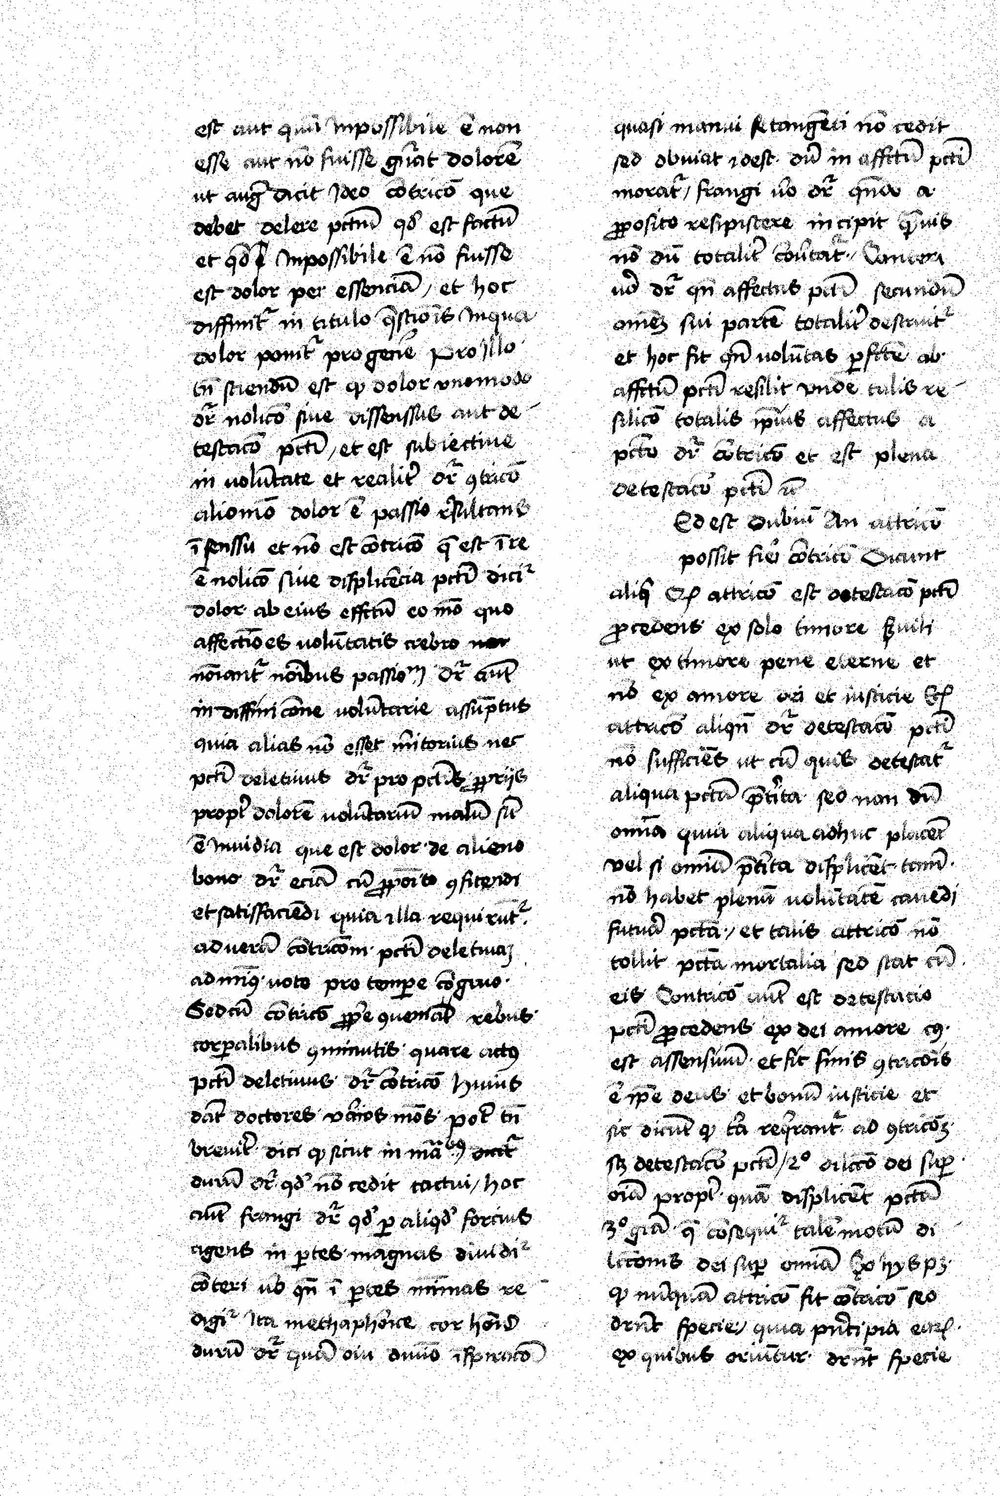 est aut quin Inpossibile ē non
esse aut nō fuisse gn̄at dolorē
ut aug9 dicit Ideo cōtricō que
debet delere pctm̄ qd' est factū
et qd' Inpossibile ē nō fuisse
est dolor per essenciā / et hoc
diffinit' in titulo q̄stiōis Inqua
dolor ponit' pro gen̄e Pro illo
tn̄ sciendū est qꝫ dolor vnomodo
dr̄ nolicō siue dissensus aut de-
testacō pcti / et est subiectiue
in volūtate et realit' dr̄ 9tricō
aliomō dolor ē passio r̄sultans
ī senssu et nō est cōtricō q̄ est ī re
ē nolicō siue displicēcia pcti dicit'
dolor ab eius effctū eo mō quo
affectiōes volūtatis crebro
noīant' noībus passionū dr̄ aūt
in diffinicōne volūtarie assūptus
quia alias nō esset m̄itorius nec
pcti deletiuus dr̄ pro pctīs ꝓprijs
propt' dolorē volūtariū malū sic̄
ē Inuidia que est dolor de alieno
bono dr̄ eciā cū ꝓpoīto 9fitendi
et satisfaciēdi quia illa requirūt'
ad verā cōtricōm pcti deletiuaꝫ
ad min9 voto pro tempe cōgruo
Sed cū cōtricō ꝓpe 9uenīat rebus
corpalibus 9minutis quare act9
pcti deletiuus dr̄ cōtricō Huius
dāt doctores v̄ios mōs pot' tn̄
breuit' dici qꝫ sicut in mā
durū dr̄ qd' nō cedit tactui / hoc
aūt frangi dr̄ qd' p aliqd' forcius
agens in ptes magnas diuidit'
cōteri v̄o qn̄ ī ptes mīimas re-
digit' Ita methaphorice cor hoīs
durū dr̄ quā diu diuīo īspiracō
quasi manui se tangēti nō cedit
sed obuiat idest dū in affctū pcti
morat' / frangi v̄o dr̄ qn̄do a
ꝓposito resipiscere incipit q̄uis
nō dū totalit' cōūtat' / Conteri
v̄o dr̄ qn̄ affectus pcti secundū
omēꝫ sui partē totalit' destruit'
et hoc fit qn̄ volūtas pfcte ab
affctū pcti resilit vnde talis re-
silicō totalis ip̄ius affectus a
pcto dr̄ cōtricō et est plena
detestacō pcti
Sed est dubiū An attricō
possit fieri cōtricō Dicunt
aliq̄ qꝫ attricō est detestacō pcti
ꝓcedens ex solo timore s'uili
ut ex timore pene eterne et
nō ex amore dei et iusticie
attricō aliqn̄ dr̄ detestacō pcti
nō sufficiēs ut cū quis detestat'
aliqua pctā p̄t'ita sed non dū
omīa quia aliqua adhuc placēt
vel si omīa p̄t'ita displicēt tam̄
nō habet plenā volūtatē cauēdi
futurā pctā / et talis attricō nō
tollit pctā mortalia sed stat cū
eis Contricō aūt est detestacio
pcti ꝓcedens ex dei amore c9
est assensiuū et fit finis 9tricōis
ē ipē deus et bonū iusticie et
sic dicūt qꝫ t̄a req̄rant' ad 9tricōꝫ
sꝫ detestacō pcti / 2° dilccō dei sup
oīa propt' quā displicēt pctā
3° grām q̄ cōsequit' talē motū di-
lectōnis dei sup omīa Ex hijs pꝫ
qꝫ nūquā attricō fit cōtricō sed
drn̄t specie / quia pn̄cipia eaꝝ
ex quibus oriūtur drn̄t specie